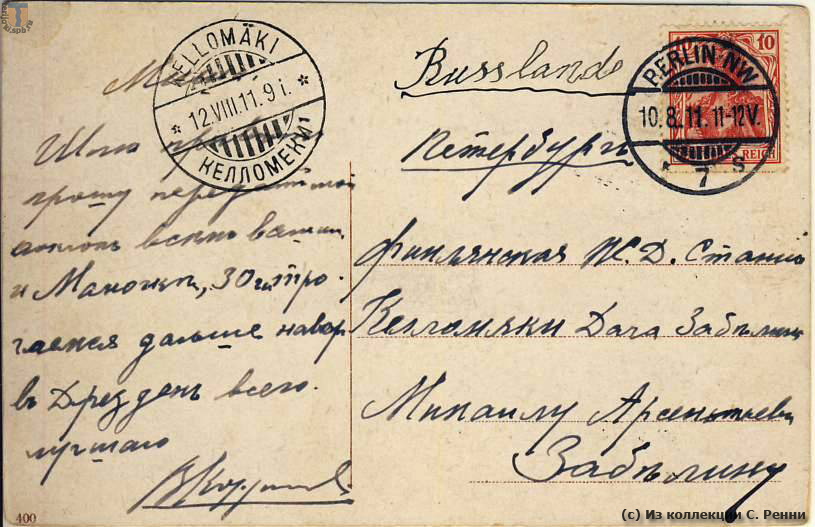 KELLOMÄKI
12.VIII.11. 9 i.
КЕЛЛОМЕКИ
прошу передать мой
и Маночки, 30го тро-
гаемся дальше
въ Дрезденъ всего
лучшаго
400
Russlande
Петербургъ
Финляндская Ж.Д. Станція
Келломяки Дача Забѣлина
Михаилу Арсеньевичу
Забѣлину
BERLIN NW
10.8.11. 11-12V.
* 7 s
10
REICH
(c) Из коллекции С. Ренни